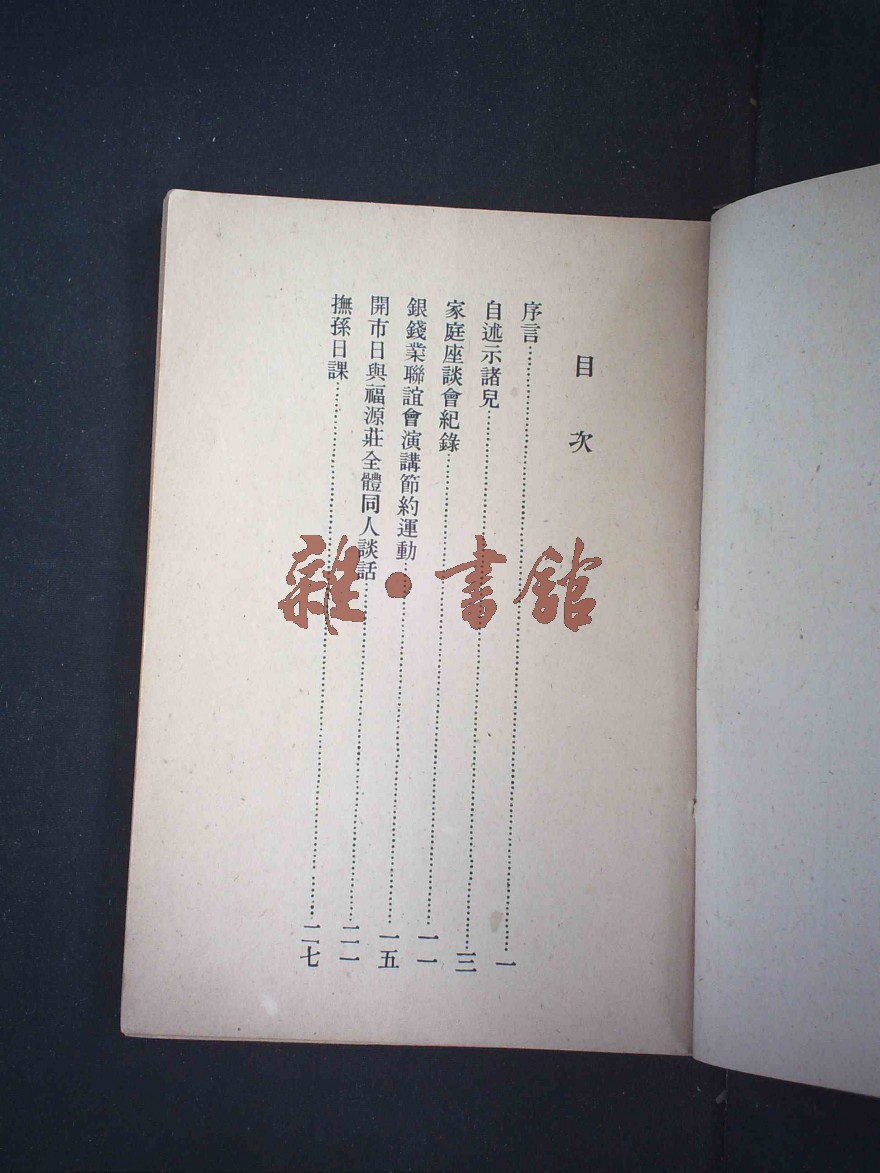 目次
序言……一
自述示諸兒……三
家庭座談會紀錄……一一
銀錢業聯誼會演講節約運動……一五
開市日與福源莊全體同人談話……二一
撫孫日課……二七
雜·書館